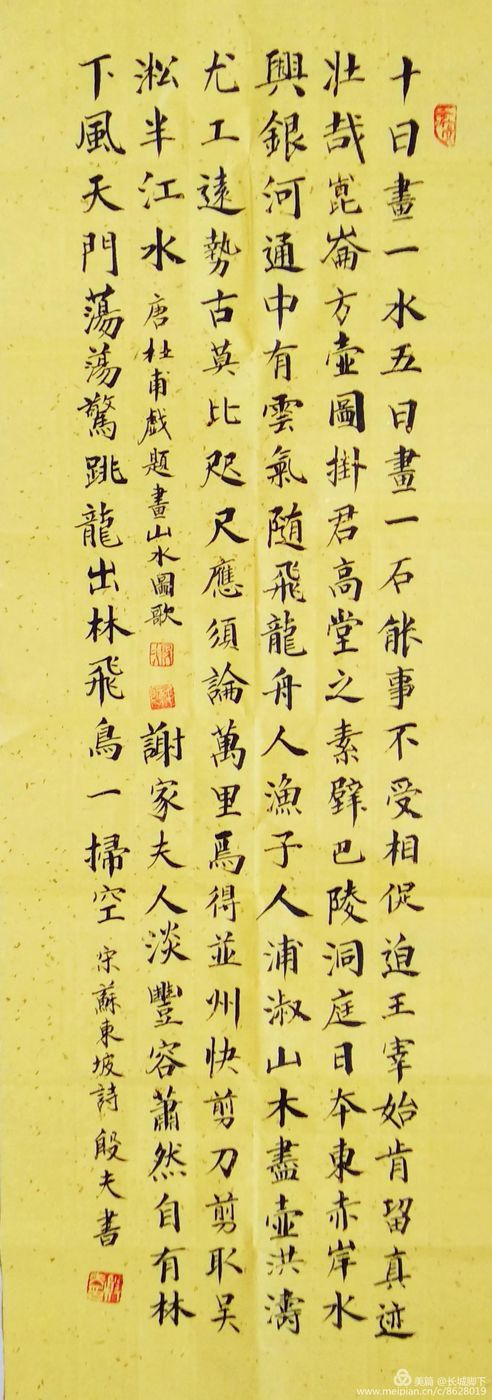 十日畫一水五日畫一石能事不受相促迫王宰始肯留真迹
壯哉崑崙方壺圖掛君高堂之素壁巴陵洞庭日本東赤岸水
與銀河通中有雲氣随飛龍舟人漁子人浦淑山木盡壺洪濤
尤工遠勢古莫比咫尺應須論萬里焉得並州快剪刀剪取吴
淞半江水 唐杜甫戲題畫山水圖歌 謝家夫人淡豐容蕭然自有林
下風天門蕩蕩驚跳龍出林飛鳥一掃空 宋蘇東坡詩殷夫書
美篇 @长城脚下
www.meipian.cn/c/8628019